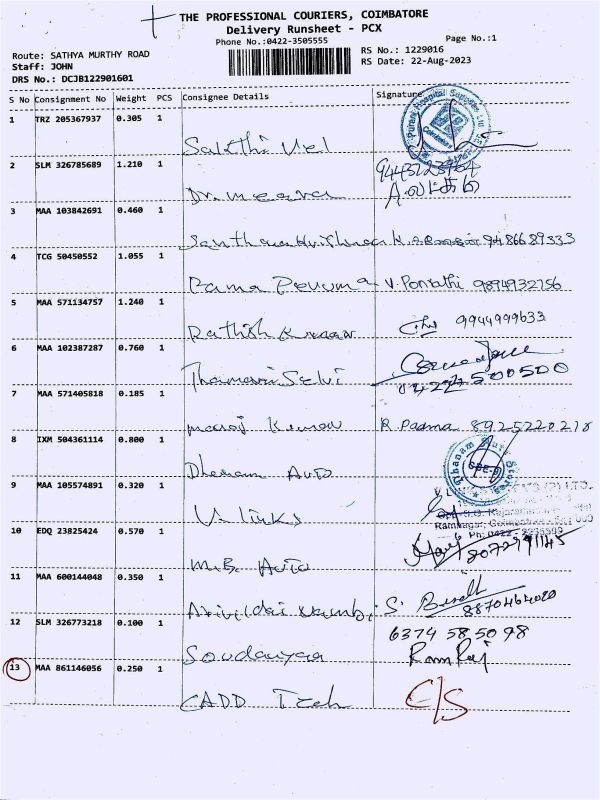 THE PROFESSIONAL COURIERS, COIMBATORE
Delivery Runsheet - PCX
Phone No.:0422-3505555
Page No.:1
Route: SATHYA MURTHY ROAD
RS No.: 1229016
Staff: JOHN
RS Date: 22-Aug-2023
DRS No.: DCJB122901601
S No Consignment No Weight PCS Consignee Details Signature
1 TRZ 205367937 0.305 1
Sakthi Vel
2 SLM 326785689 1.210 1
Dr. meera
3 MAA 103842691 0.460 1
Santhana Krishnan 9486689333
4 TCG 50450552 1.055 1
Rama Perumal V. Ponrathi 9894932756
5 MAA 571134757 1.240 1 9944999633
Rathish Kumar
6 MAA 102387287 0.760 1
Thamarai Selvi 04224500500
7 MAA 571405818 0.185 1
manoj Kumar R. Padma 8925220218
8 IXM 504361114 0.800 1
Dhanam Auto
9 MAA 105574891 0.320 1
V-links
Ramnagar, Coimbatore
Ph: 0422
10 EDQ 23825424 0.570 1 8072791145
M.B. Auto
11 MAA 600144048 0.350 1
8870464020
12 SLM 326773218 0.100 1 6374585098
Soudaryaa Ram Raj
13 MAA 861146056 0.250 1
CADD Tech C/S